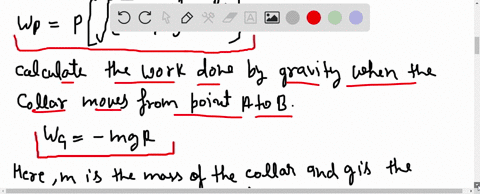 WP = P[√
calculate the work done by gravity when the
Collar moves from point A to B.
WG = -mgR
Here, m is the mass of the collar and g is the